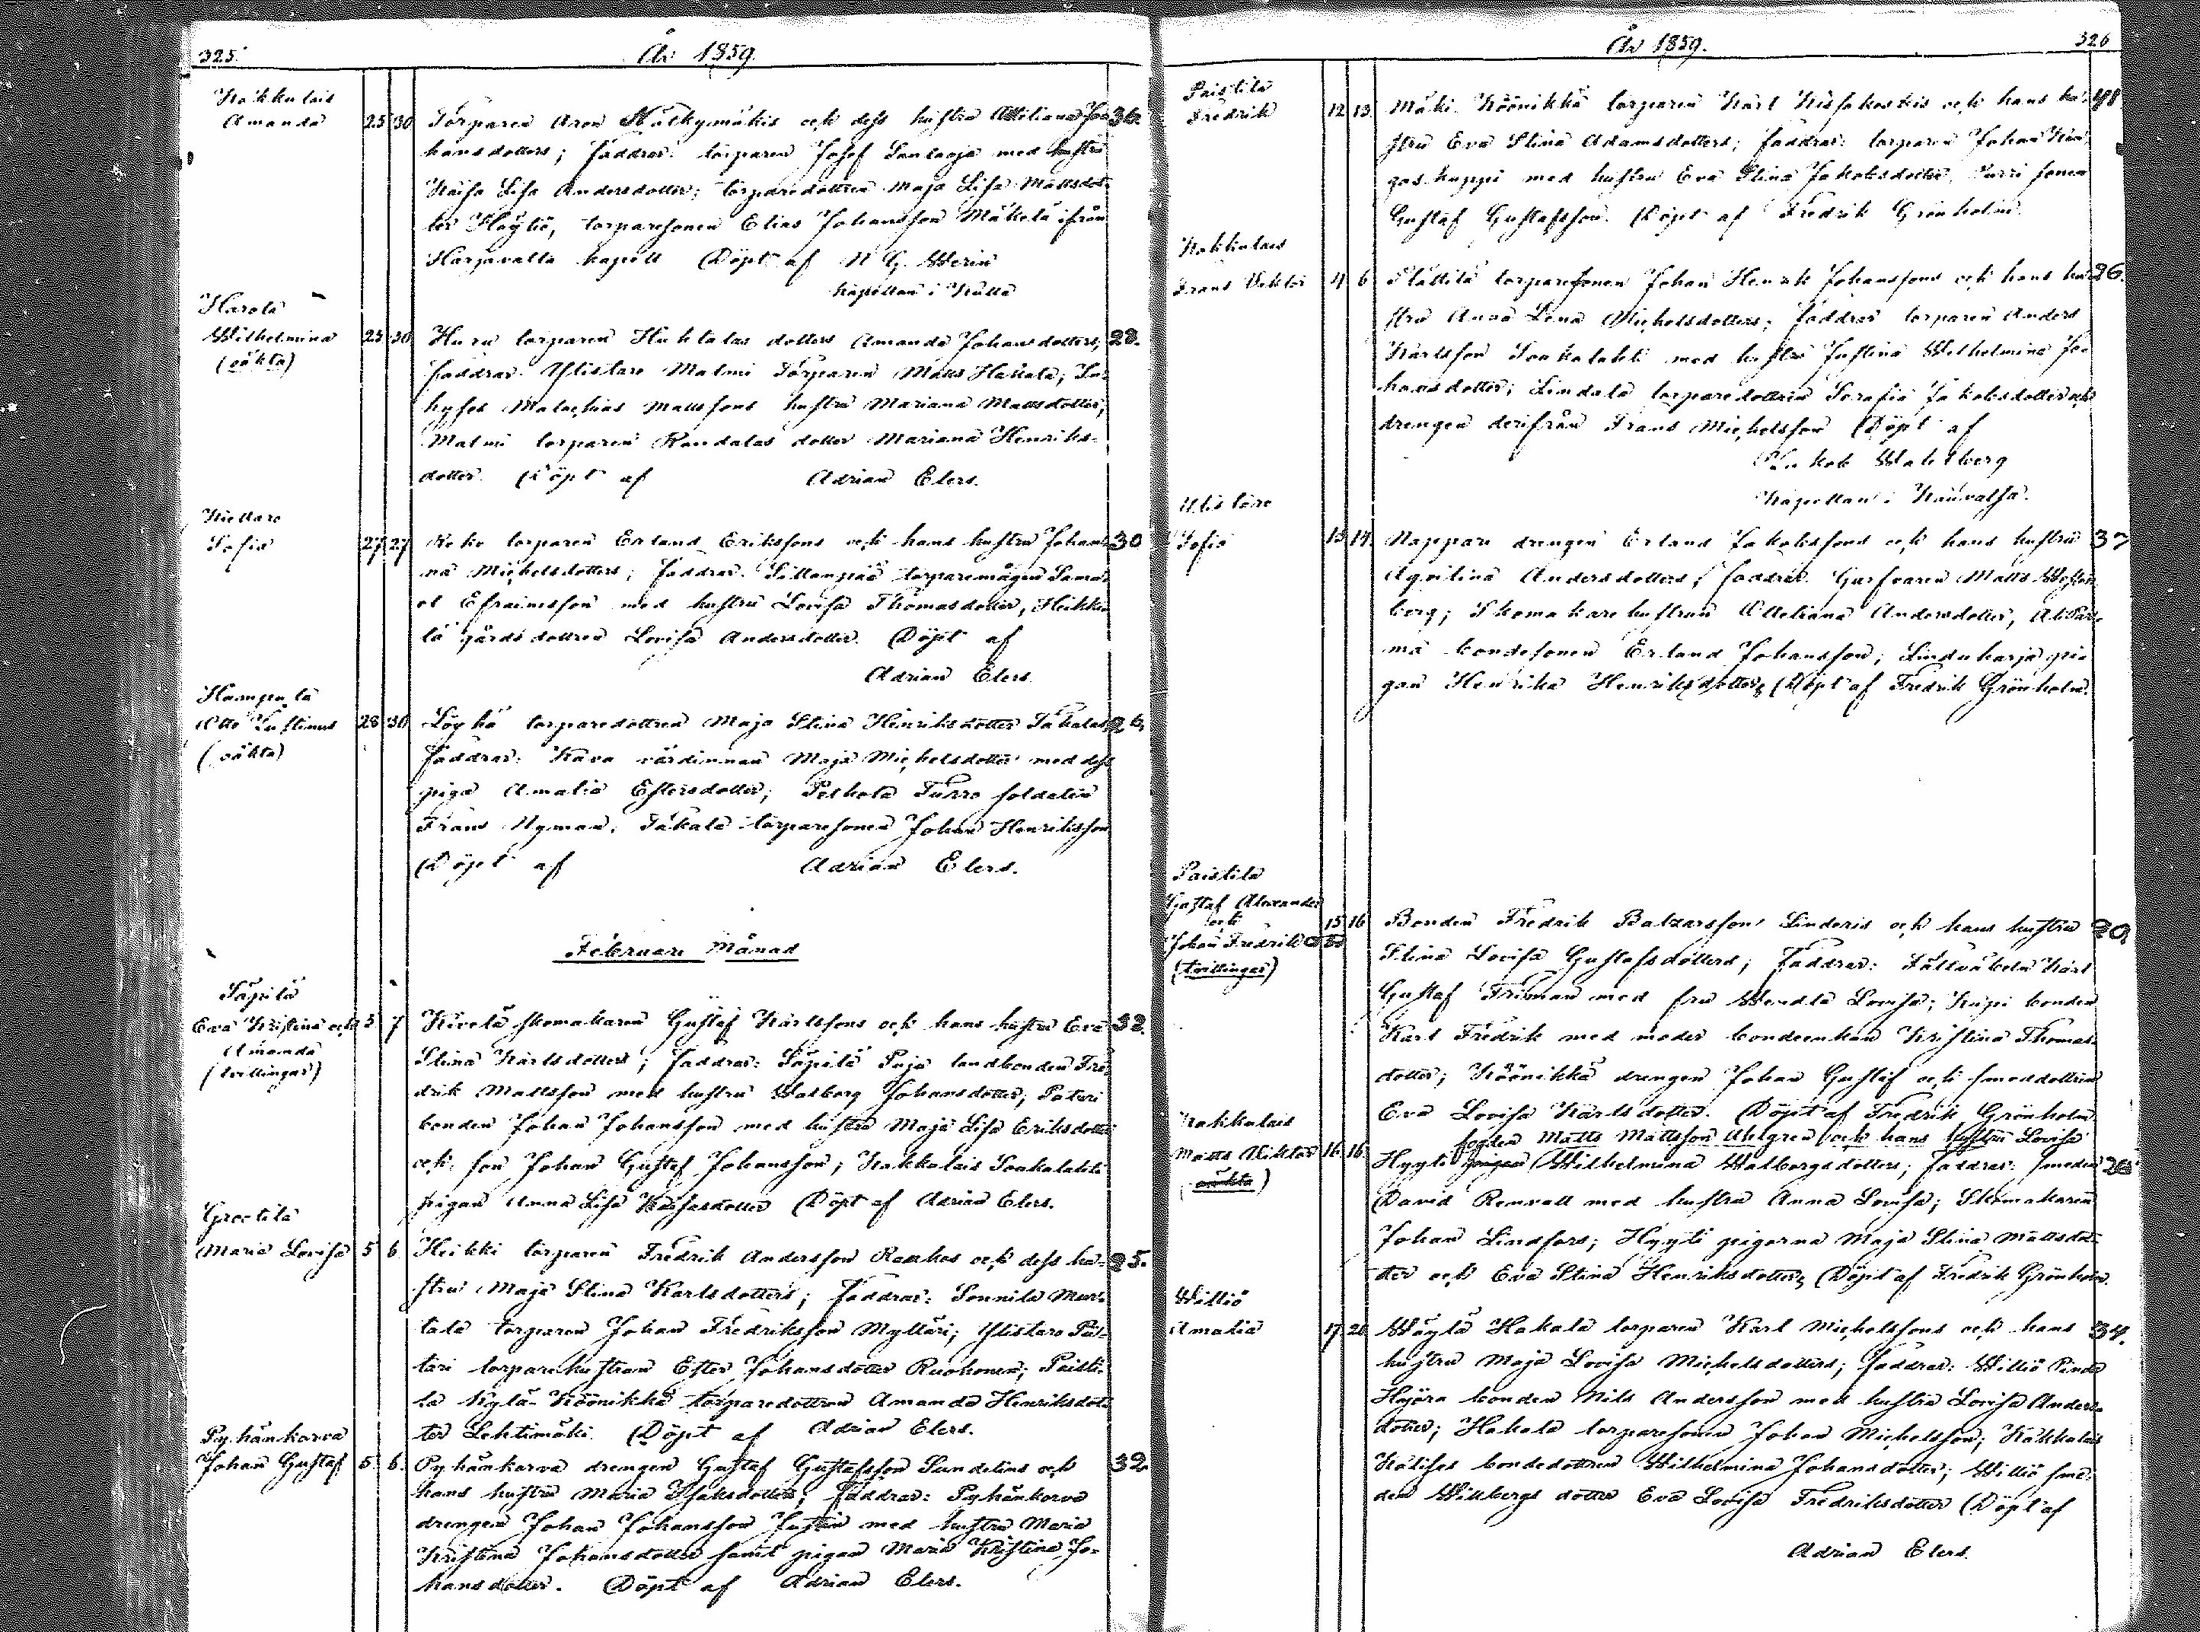 325.
År 1859.
Kakkulais
Amanda 25 30 Torparen Aron Kälkymäkis och dess hustru Ottiliana Jo- 36.
hansdotters; faddrar: torparen Josef Santaoja med hustru
Kaisa Lisa Andersdotter; torparedottren Maja Lisa Mattsdot-
ter Höytiö, torparesonen Elias Johansson Mäkelä ifrån
Harjavalta kapell Döpt af N G. Werin
kapellan i Kulla
Harola
Wilhelmina 25 30 Huru torparen Huhtalas dotters Amanda Johansdotters; 22.
(oäkta) faddrar: Ylistaro Malmi Torparen Matts Hakala; In-
hyses Malachias Mattssons hustru Mariana Mattsdotter;
Malmi torparen Randalas dotter Mariana Henriks-
dotter. Döpt af Adrian Elers.
Kiettare
Sofia 27 27 Koko torparen Erland Erikssons och hans hustru Johan- 30
na Michelsdotters; faddrar: Sillanpää torparemågen Samu-
el Efraimsson med hustru Lovisa Thomasdotter, Heikki-
lä gårdsdottren Lovisa Andersdotter. Döpt af
Adrian Elers.
Hampula
Otto Justinus 28 30 Löykä torparedottren Maja Stina Henriksdotter Takalas 26.
(oäkta) faddrar: Kava värdinnan Maja Michelsdotter med dess
piga Amalia Estersdotter; Pelhola Turro soldaten
Frans Nyman, Takala torparesonen Johan Henriksson
Döpt af Adrian Elers.
Februari Månad
Säpilä
Eva Kristina och 5 7 Kivelä skomakaren Gustaf Karlssons och hans hustru Eva 32.
Amanda Stina Karlsdotters; faddrar: Säpilä Puja landbonden Fre-
(tvillingar) drik Mattsson med hustru Walborg Johansdotter; Pateri
bonden Johan Johansson med hustru Maja Lisa Eriksdotter
och son Johan Gustaf Johansson; Kakkulais Saakalahti
pigan Anna Lisa Kaisasdotter Döpt af Adrian Elers.
Greetilä
Maria Lovisa 5 6 Heikki torparen Fredrik Andersson Raukos och dess hu- 25.
stru Maja Stina Karlsdotters; Faddrar: Sonnila Mar-
tala torparen Johan Fredriksson Mylläri; Ylistaro Päl-
täri torparehustrun Ester Johansdotter Ruohonen; Paisti-
la Kylä-Köönikkä torparedottren Amanda Henriksdot-
ter Lehtimäki. Döpt af Adrian Elers.
Pyhänkorva
Johan Gustaf 5 6 Pyhänkorva drengen Gustaf Gustafsson Sundelins och 32.
hans hustru Maria Isaksdotters; faddrar: Pyhänkorva
drengen Johan Johansson Justen med hustru Maria
Kristina Johansdotter samt pigan Maria Kristina Jo-
hansdotter. Döpt af Adrian Elers.
År 1859.
326
Paistila
Fredrik 12 13 Mäki-Köönikkä torparen Karl Kiisakoskis och hans hu-
stru Eva Stina Adamsdotters; faddrar: torparen Johan
med hustru Eva Stina Jakobsdotter, Purri sonen
Gustaf Gustafsson. Döpt af Fredrik Grönholm.
Kakkulais
Frans Viktor 4 6 Plättilä torparesonen Johan Henrik Johanssons och hans hu- 26.
stru Anna Lena Michelsdotters; faddrar torparen Anders
Karlsson Saakalahti med hustru Justina Wilhelmina Jo-
hansdotter; Lindala torparedottren Serafia Jakobsdotter och
drengen derifrån Frans Michelsson Döpt af
Jakob Wahlberg
Kapellan i Kauvatsa.
Ulistaro
Sofia 13 14 Nappari drengen Erland Jakobssons och hans hustru 37
Aqvilina Andersdotters; faddrar: Garfvaren Matts Wester-
berg; Skomakarehustrun Otteliana Andersdotter,
bondesonen Erland Johansson; Linduharja pi-
gan Henrika Henriksdotter, Döpt af Fredrik Grönholm.
Paistila
Gustaf Alexander
och 15 16 Bonden Fredrik Balzarsson Linderis och hans hustru 29
Johan Fredrik Stina Lovisa Gustafsdotters; Faddrar: Fältväbeln Karl
(tvillingar) Gustaf Friman med fru Wendla Lovisa; Kupi bonden
Karl Fredrik med moder bondeenkan Kristina Thomas-
dotter; Köönikkä drengen Johan Gustaf och smeddottren
Eva Lovisa Karlsdotter. Döpt af Fredrik Grönholm
Kakkulais
sonen Matts Mattsson Ahlgren och hans hustru Lovisa
Matts Viktor 16 16 Hyyti pigan Wilhelmina Walborgsdotters; faddrar: smeden
(oäkta) David Renvall med hustru Anna Lovisa; Skomakaren
Johan Lindfors; Hyyti pigorna Maja Stina Mattsdot-
ter och Eva Stina Henriksdotter, Döpt af Fredrik Grönholm.
Williö
Amalia 17 20 Wäylä Hakala torparen Karl Michelssons och hans 34.
hustru Maja Lovisa Michelsdotters; faddrar: Williö
bonden Nils Andersson med hustru Lovisa Anders-
dotter; Hakala torparesonen Johan Michelsson; Kakkulais
bondedottren Wilhelmina Johansdotter; Williö sme-
den Willbergs dotter Eva Lovisa Fredriksdotter Döpt af
Adrian Elers.